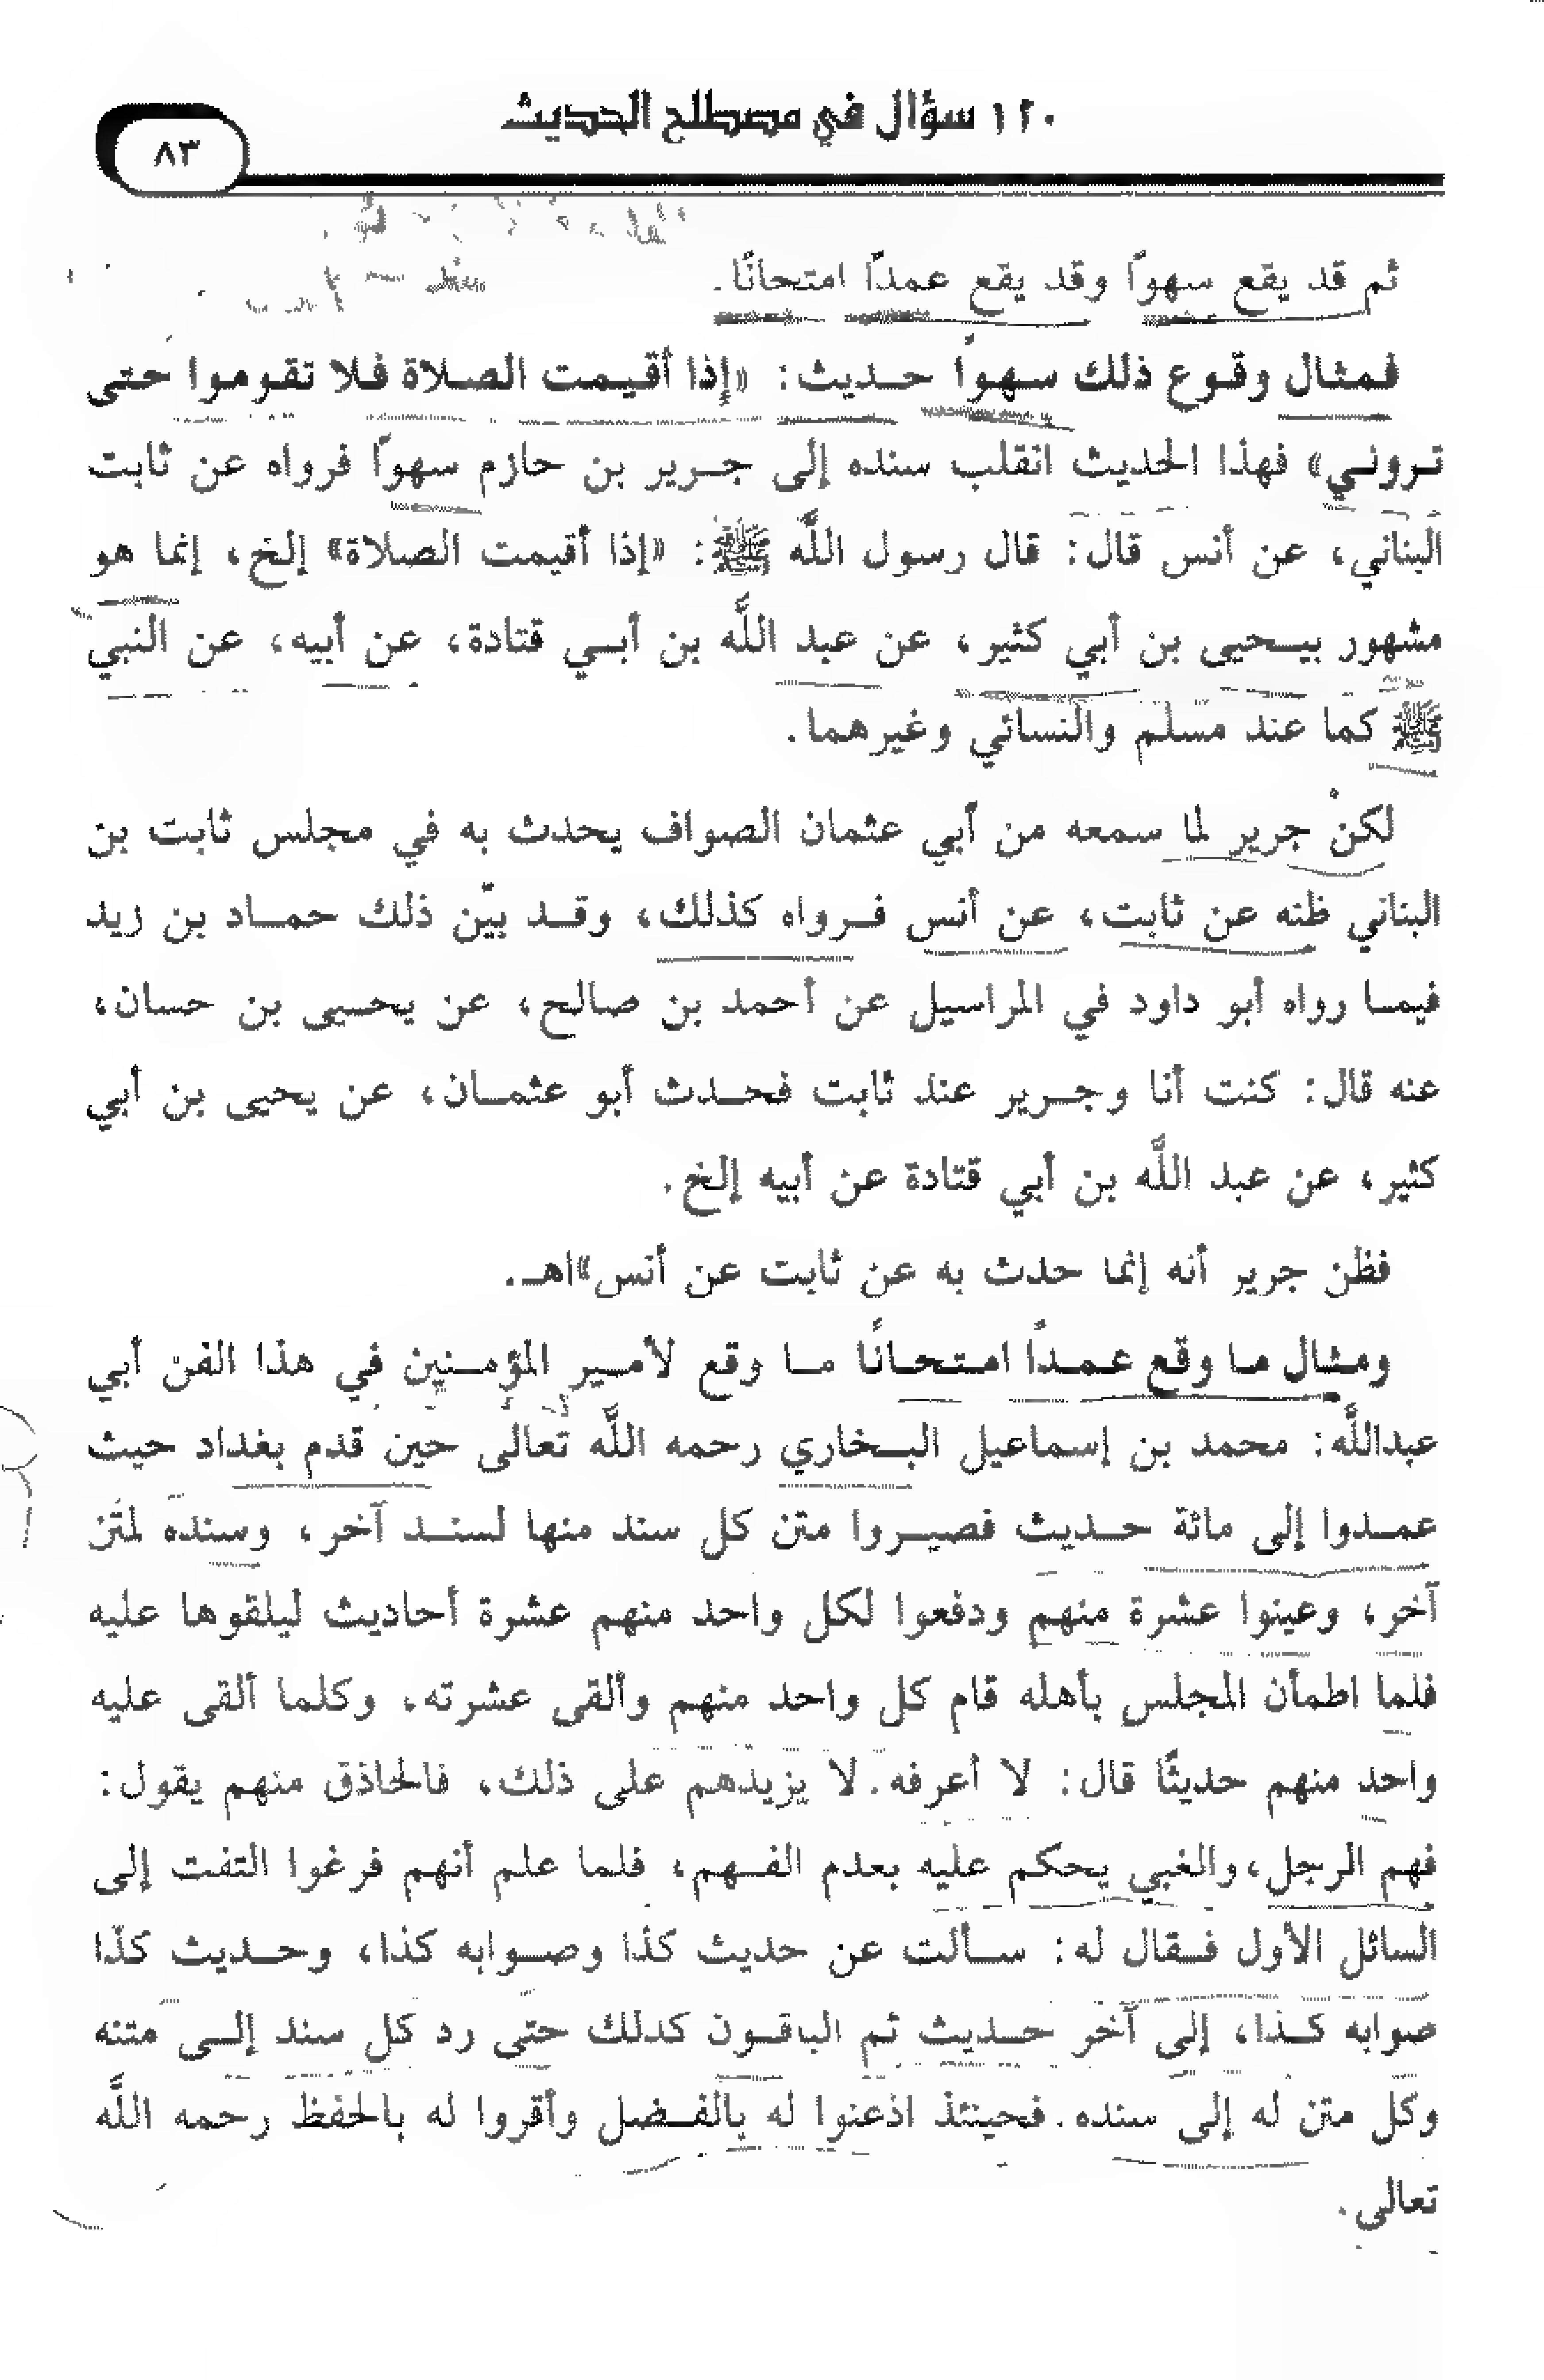 ١٢٠ سؤال في مصطلح الحديث
٨٣
ثم قد يقع سهوًا وقد يقع عمدًا امتحانًا.
فمثال وقوع ذلك سهوًا حديث: «إذا أقيمت الصلاة فلا تقوموا حتى
تروني» فهذا الحديث انقلب سنده إلى جرير بن حازم سهوًا فرواه عن ثابت
البناني، عن أنس قال: قال رسول اللَّه ﷺ: «إذا أقيمت الصلاة» إلخ، إنما هو
مشهور بيحيى بن أبي كثير، عن عبد اللَّه بن أبي قتادة، عن أبيه، عن النبي
ﷺ كما عند مسلم والنسائي وغيرهما.
لكنْ جرير لما سمعه من أبي عثمان الصواف يحدث به في مجلس ثابت بن
البناني ظنه عن ثابت، عن أنس فرواه كذلك، وقد بيّن ذلك حماد بن زيد
فيما رواه أبو داود في المراسيل عن أحمد بن صالح، عن يحيى بن حسان،
عنه قال: كنت أنا وجرير عند ثابت فحدث أبو عثمان، عن يحيى بن أبي
كثير، عن عبد اللَّه بن أبي قتادة عن أبيه إلخ.
فظن جرير أنه إنما حدث به عن ثابت عن أنس»اهـ.
ومثال ما وقع عمدًا امتحانًا ما وقع لأمير المؤمنين في هذا الفن أبي
عبداللَّه: محمد بن إسماعيل البخاري رحمه اللَّه تعالى حين قدم بغداد حيث
عمدوا إلى مائة حديث فصيروا متن كل سند منها لسند آخر، وسنده لمتن
آخر، وعينوا عشرة منهم ودفعوا لكل واحد منهم عشرة أحاديث ليلقوها عليه
فلما اطمأن المجلس بأهله قام كل واحد منهم وألقى عشرته، وكلما ألقى عليه
واحد منهم حديثًا قال: لا أعرفه. لا يزيدهم على ذلك، فالحاذق منهم يقول:
فهم الرجل، والغبي يحكم عليه بعدم الفهم، فلما علم أنهم فرغوا التفت إلى
السائل الأول فقال له: سألت عن حديث كذا وصوابه كذا، وحديث كذا
صوابه كذا، إلى آخر حديث ثم الباقون كذلك حتى رد كل سند إلى متنه
وكل متن له إلى سنده. فحينئذ اذعنوا له بالفضل وأقروا له بالحفظ رحمه اللَّه
تعالى.